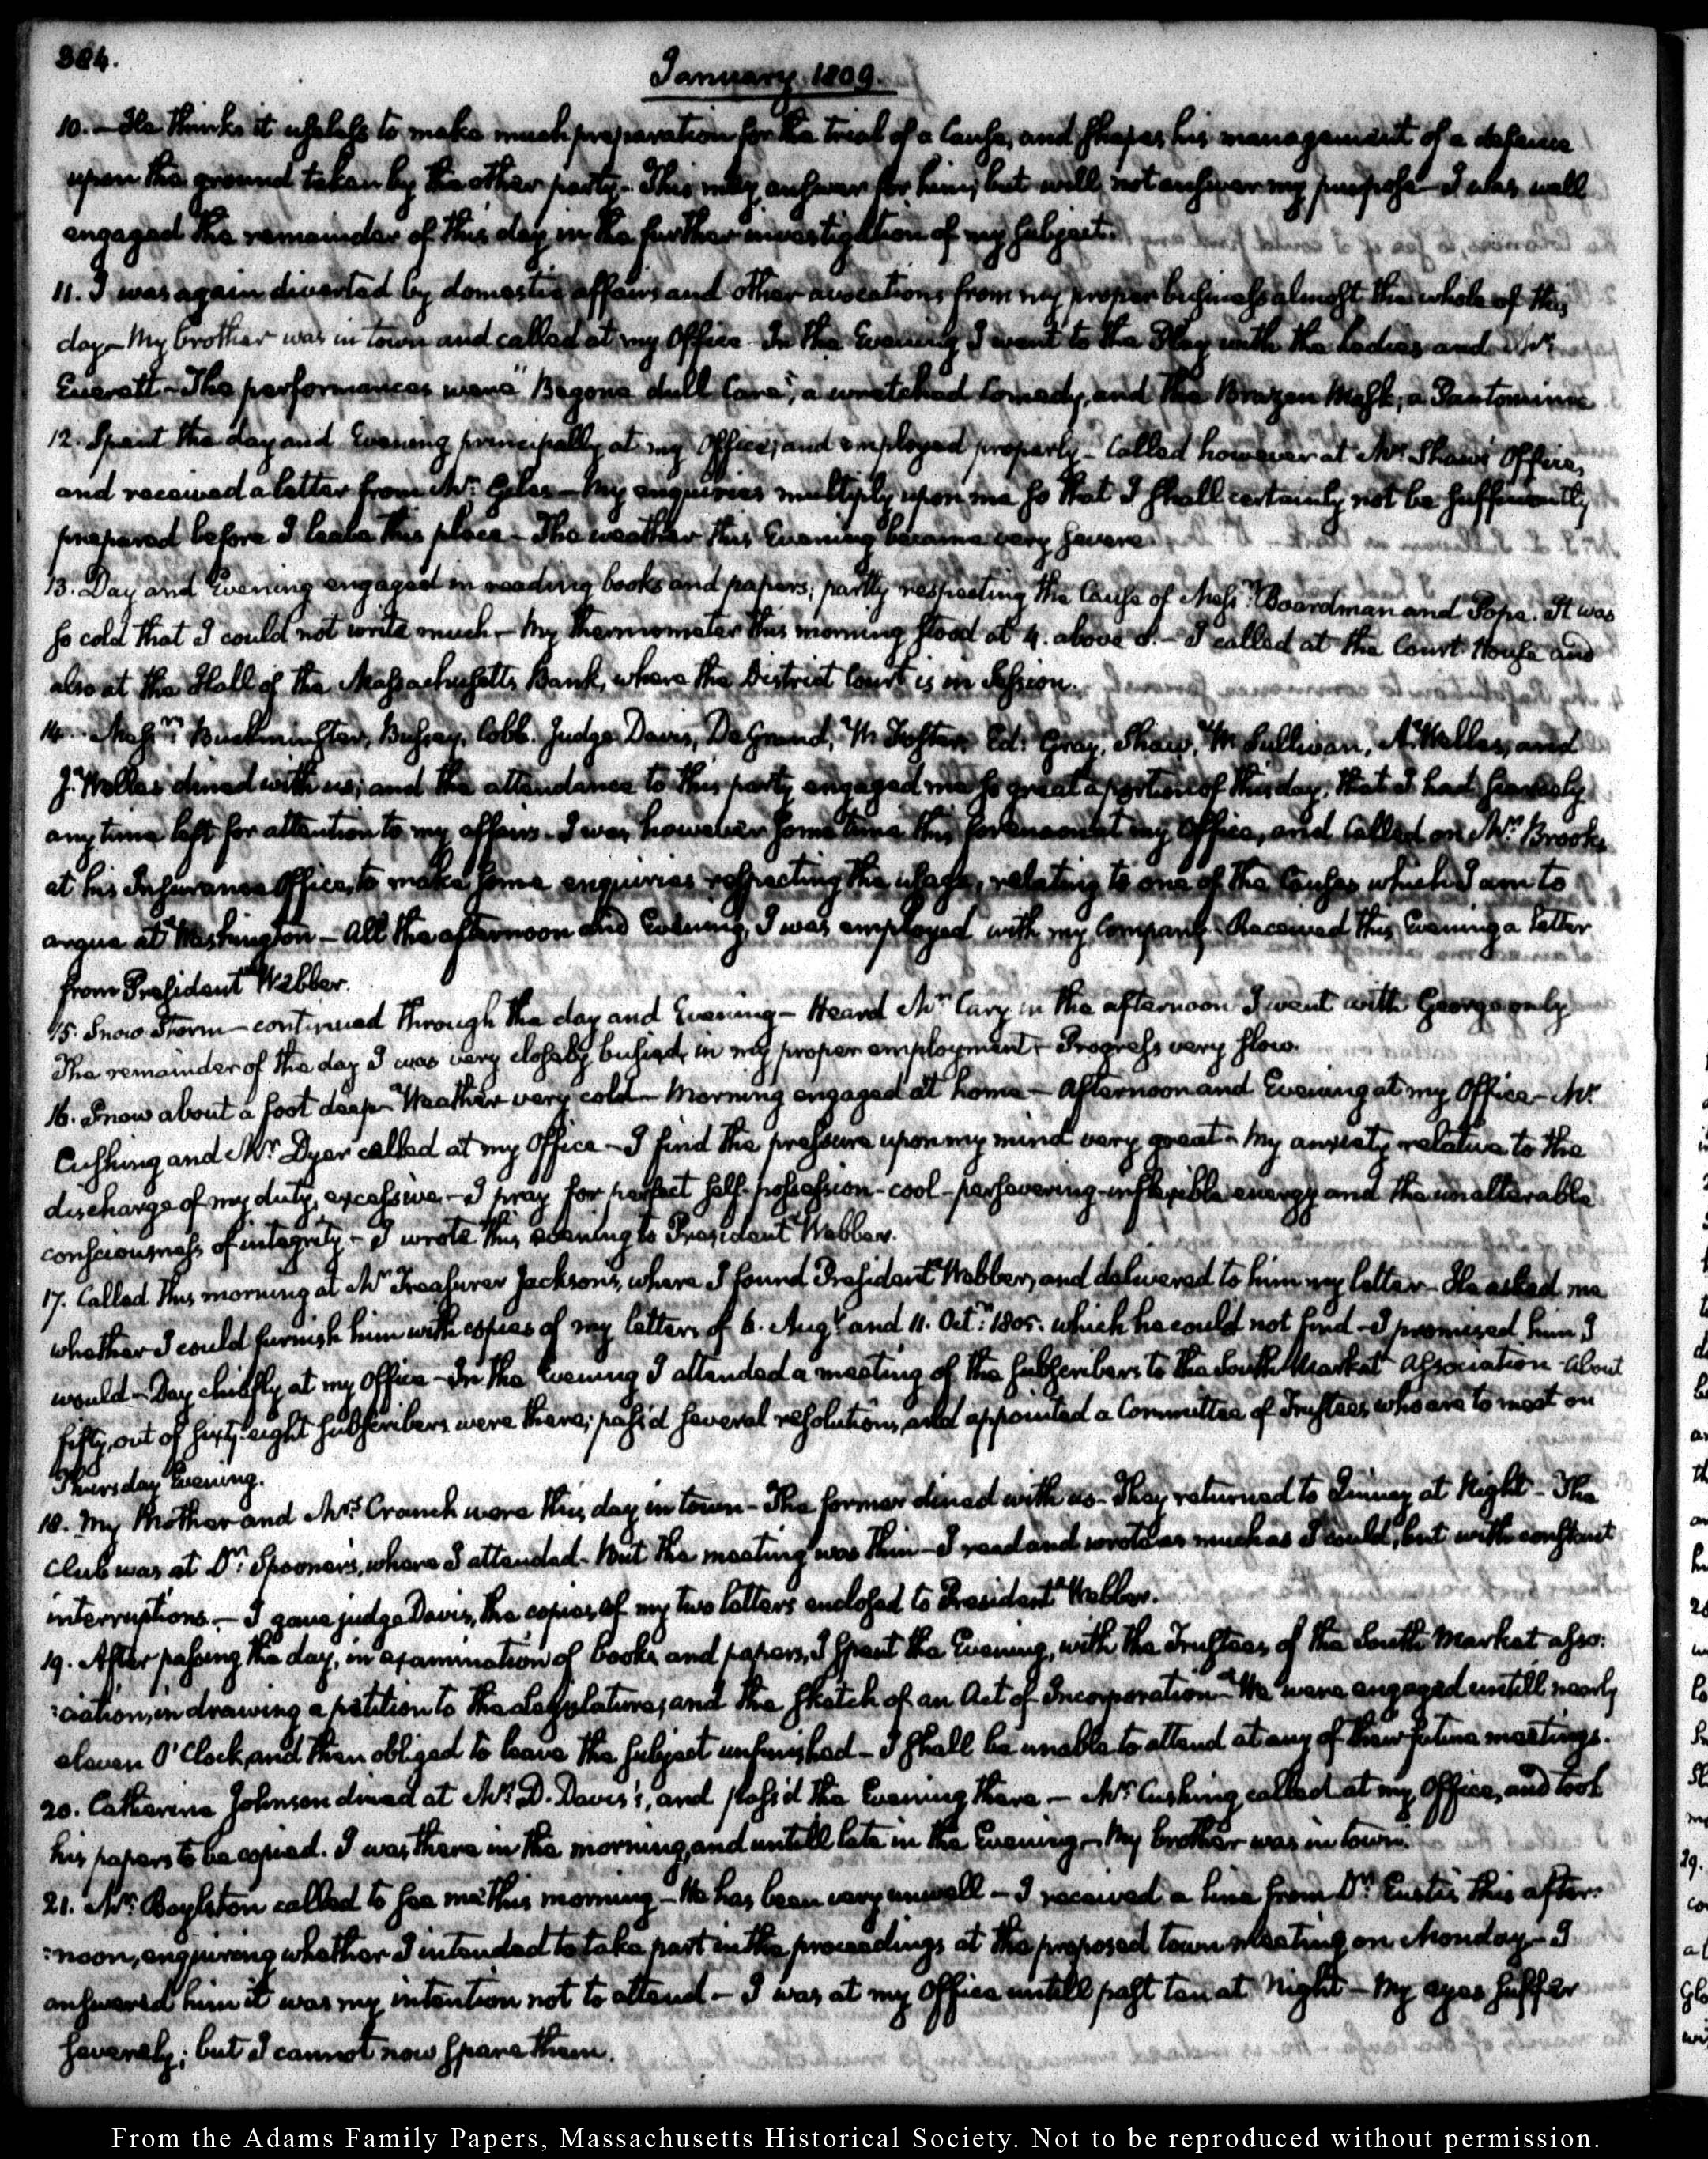 384.
January 1809.
10. — He thinks it useless to make much preparation for the trial of a Cause, and shapes his management of a defence
upon the ground taken by the other party. This may answer for him; but will not answer my purpose — I was well
engaged the remainder of this day in the further investigation of my subject.
11. I was again diverted by domestic affairs and other avocations from my proper business almost the whole of this
day — My brother was in town and called at my Office — In the Evening I went to the Play with the Ladies and Mr.
Everett — The performances were "Begone dull Care", a wretched Comedy, and the Brazen Mask; a Pantomime
12. Spent the day and Evening principally at my Office, and employed properly — Called however at Mr. Shaw's Office,
and received a letter from Mr. Giles — My enquiries multiply upon me so that I shall certainly not be sufficiently
prepared before I leave this place — The weather this Evening became very severe.
13. Day and Evening engaged in reading books and papers; partly respecting the Cause of Messrs. Boardman and Pope. It was
so cold that I could not write much — My Thermometer this morning stood at 4. above 0. — I called at the Court House and
also at the Hall of the Massachusetts Bank, where the District Court is in Session.
14. Messrs. Buckminster, Bussey, Cobb. Judge Davis, DeGrand, W. Foster, Ed: Gray, Shaw, W. Sullivan, A. Welles, and
J. Welles dined with us; and the attendance to this party engaged me so great a portion of this day, that I had scarcely
any time left for attention to my affairs — I was however some time this forenoon at my Office, and called on Mr. Brooks
at his Insurance Office, to make some enquiries respecting the usage, relating to one of the Causes which I am to
argue at Washington — All the afternoon and Evening, I was employed with my Company. Received this Evening a letter
from President Webber.
15. Snow Storm — continued through the day and Evening — Heard Mr. Cary in the afternoon I went with George only
The remainder of the day I was very closely busied, in my proper employment — Progress very slow.
16. Snow about a foot deep — Weather very cold — Morning engaged at home — Afternoon and Evening at my Office — Mr.
Cushing and Mr. Dyer called at my Office — I find the pressure upon my mind very great — My anxiety relative to the
discharge of my duty, excessive — I pray for perfect self-possession — cool — persevering — inflexible energy and the unalterable
consciousness of integrity — I wrote this evening to President Webber.
17. Called this morning at Mr. Treasurer Jackson's, where I found President Webber, and delivered to him my letter — He asked me
whether I could furnish him with copies of my letters of 6. Augt. and 11. Octr. 1805. which he could not find — I promised him I
would — Day chiefly at my Office — In the Evening I attended a meeting of the subscribers to the South Market Association — About
fifty, out of sixty-eight subscribers were there; pass'd several resolutions, and appointed a Committee of Trustees who are to meet on
Thursday Evening.
18. My Mother and Mrs. Cranch were this day in town — The former dined with us — They returned to Quincy at Night — The
Club was at Dr. Spooner's, where I attended — But the meeting was thin — I read and wrote as much as I could, but with constant
interruptions. — I gave judge Davis, the copies of my two letters enclosed to President Webber.
19. After passing the day, in examination of books and papers, I spent the Evening, with the Trustees of the South Market asso:
:ciation, in drawing a petition to the Legislature, and the sketch of an Act of Incorporation — We were engaged untill nearly
eleven O'Clock, and then obliged to leave the subject unfinished — I shall be unable to attend at any of their future meetings.
20. Catherine Johnson dined at Mr. D. Davis's, and pass'd the Evening there — Mr. Cushing called at my Office, and took
his papers to be copied. I was there in the morning, and untill late in the Evening — My brother was in town.
21. Mr. Boylston called to see me this morning — He has been very unwell — I received a line from Dr. Eustis this after:
:noon, enquiring whether I intended to take part in the proceedings at the proposed town meeting on Monday — I
answered him it was my intention not to attend — I was at my Office untill past ten at Night — My eyes suffer
severely; but I cannot now spare them.
From the Adams Family Papers, Massachusetts Historical Society. Not to be reproduced without permission.